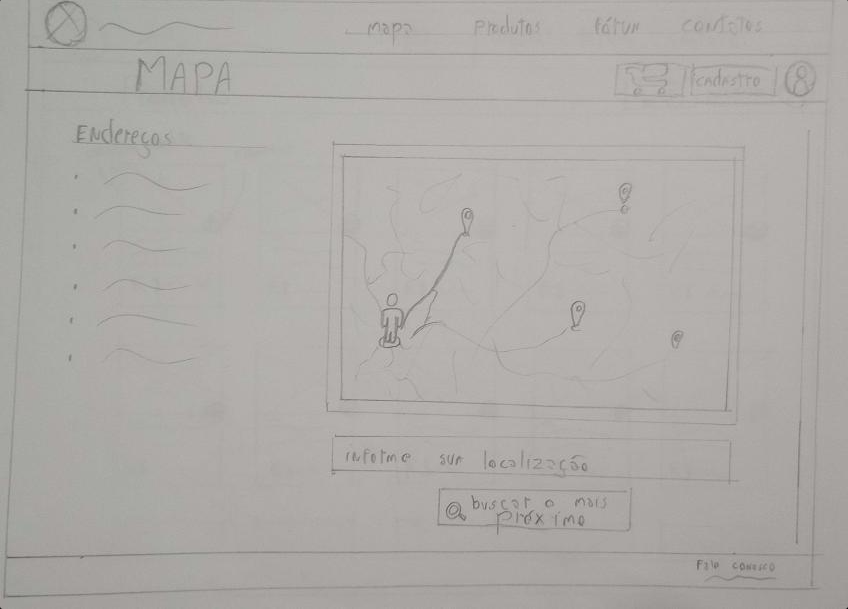 mapa produtos fórum contatos
MAPA
CADASTRO
Endereços
informe sua localização
buscar o mais
próximo
Fale conosco